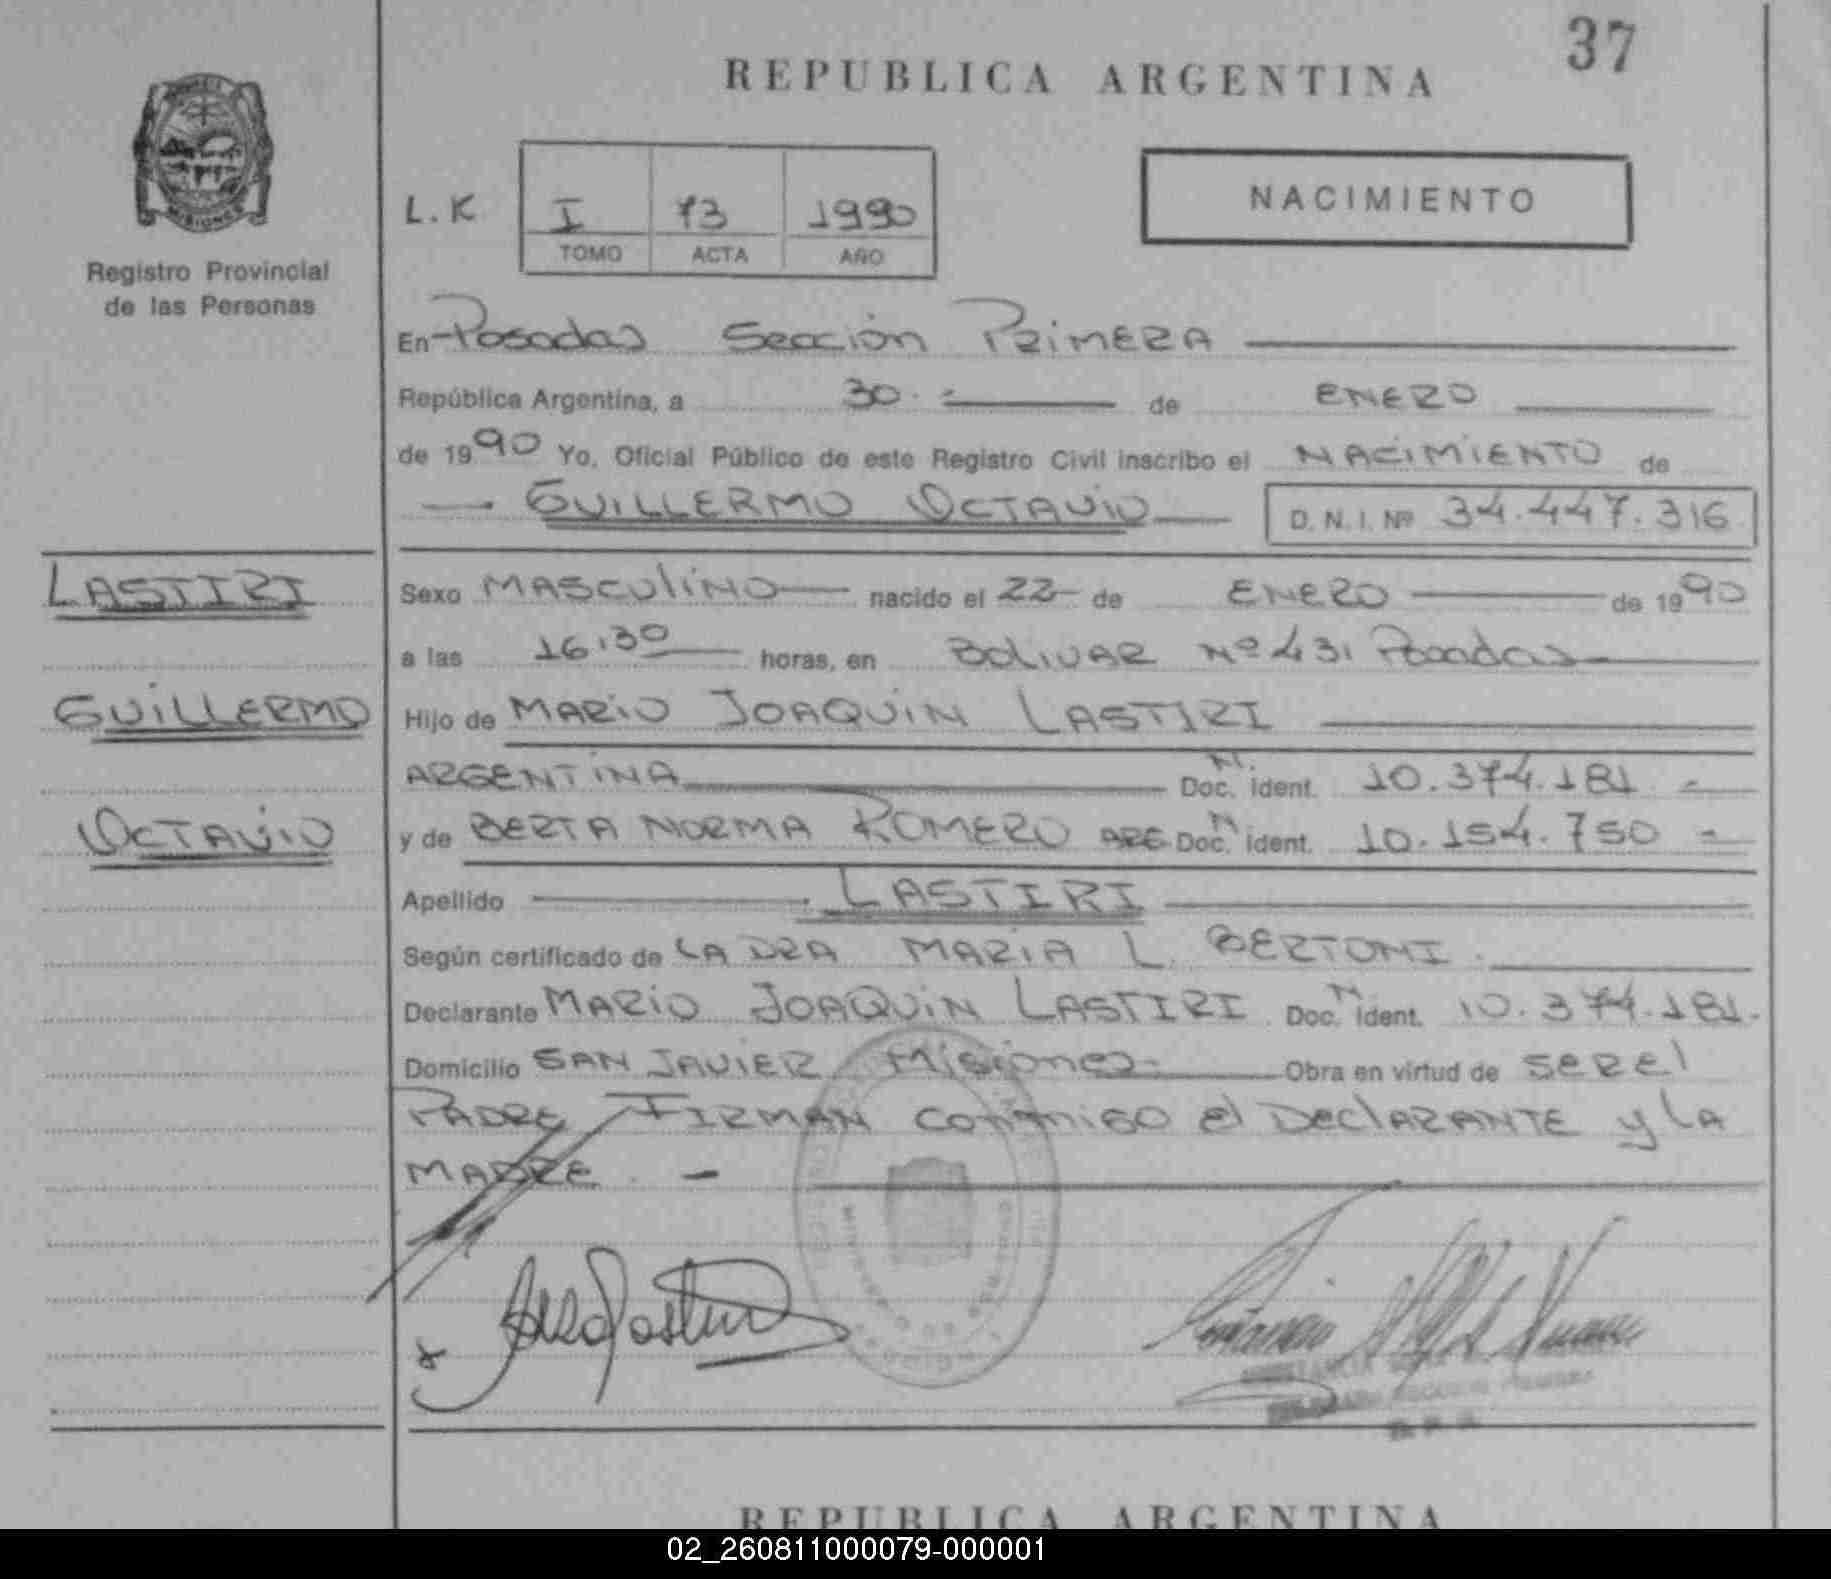 37
REPUBLICA ARGENTINA
MISIONES
Registro Provincial
de las Personas
L.K
I 73 1990
TOMO ACTA AÑO
NACIMIENTO
En Posadas Sección Primera
República Argentina, a 30.- de ENERO
de 1990 Yo, Oficial Público de este Registro Civil inscribo el NACIMIENTO de
GUILLERMO OCTAVIO D.N.I. Nº 34.447.316
LASTIRI
Sexo MASCULINO nacido el 22 de ENERO de 1990
a las 16,30 horas, en BOLIVAR Nº 431 Posadas
GUILLERMO
Hijo de MARIO JOAQUIN LASTIRI
ARGENTINA Doc. N. ident. 10.374.181 -
OCTAVIO
y de BERTA NORMA ROMERO ARG Doc. N ident. 10.154.750 -
Apellido LASTIRI
Según certificado de LA DRA MARIA L. BERTONI.
Declarante MARIO JOAQUIN LASTIRI Doc. N ident. 10.374.181.
Domicilio SAN JAVIER Misiones- Obra en virtud de SER El
PADRE FIRMAN conmigo el DEClARANTE y LA
MADRE. -
REPUBLICA ARGENTINA
02_260811000079-000001